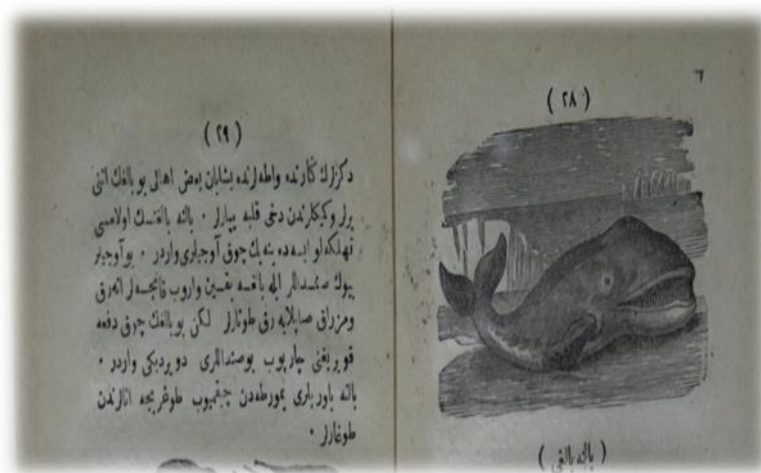 ٦
( ٢٨ )
( بالنه بالغى )
( ٢٩ )
دكزلرك كنارنده واطه لرنده يشايان بعض اهالى بو بالغك اتنى
يرلر وكيكلرندن دخى قلبه يپارلر ٠ بالنه بالغنك اولامسى
تهلكه لو ايسه ده ينه پك چوق آوجيلرى واردر ٠ بو آوجيلر
بيوك صندللر ايله بالغه يقين واروب قانجه لر اته رق
ومزراق صاپلايه رق طوتارلر لكن بو بالغك چوق دفعه
قويريغنى چارپوب بو صندللرى دويرديكى واردر ٠
بالنه ياوريلرى يمورطه دن چيقميوب طوغريجه انالرندن
طوغارلر ٠